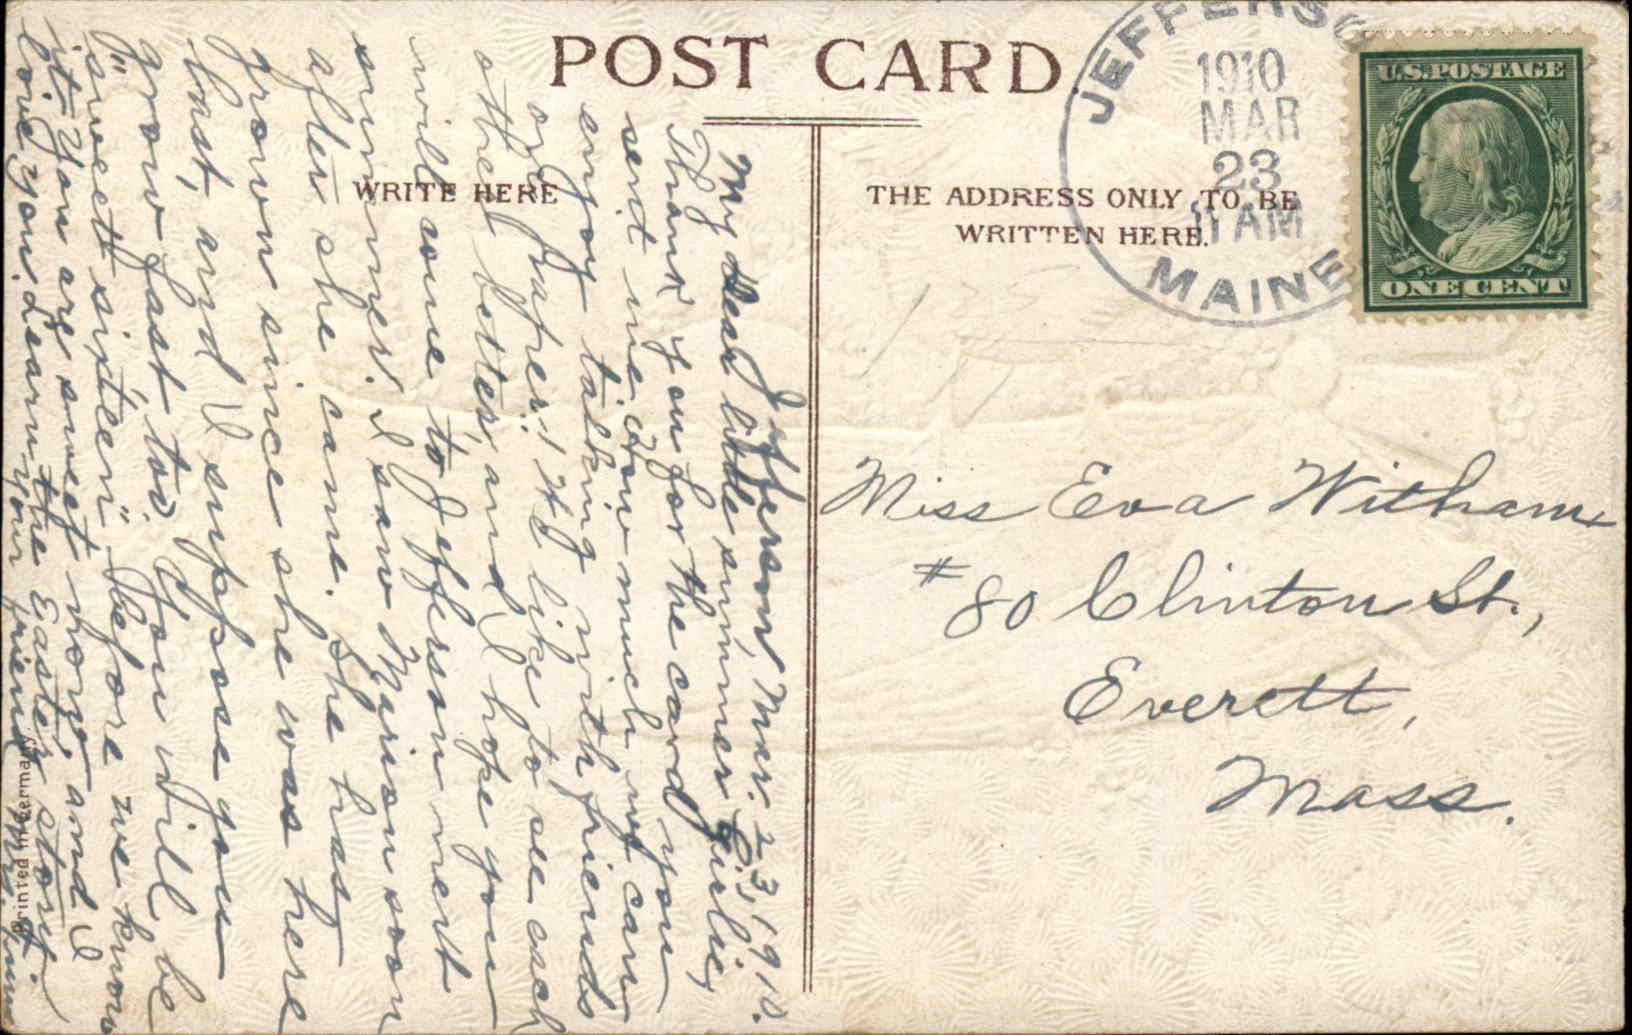 POST CARD.
WRITE HERE
THE ADDRESS ONLY TO BE
WRITTEN HERE.
JEFFERSO
1910
MAR
23
11 AM
MAINE
U.S. POSTAGE
ONE CENT
Miss Eva Witham
#80 Clinton St.,
Everett,
Mass.
Jefferson, Mar. 23, 1910.
My Dear little summer girlie;
Thank you for the card you
sent me. How much we can
enjoy talking with friends
on paper! I'd like to see each
other better, and I hope you
will come to Jefferson next
summer. I saw Marion soon
after she came. She has
grown since she was here
last, and I suppose you
grow fast, too. You will be
"sweet sixteen" before we know
it. You are sweet now, and I
love you, Dearum the Easter story
Your friend, Mrs.
Printed in Germany